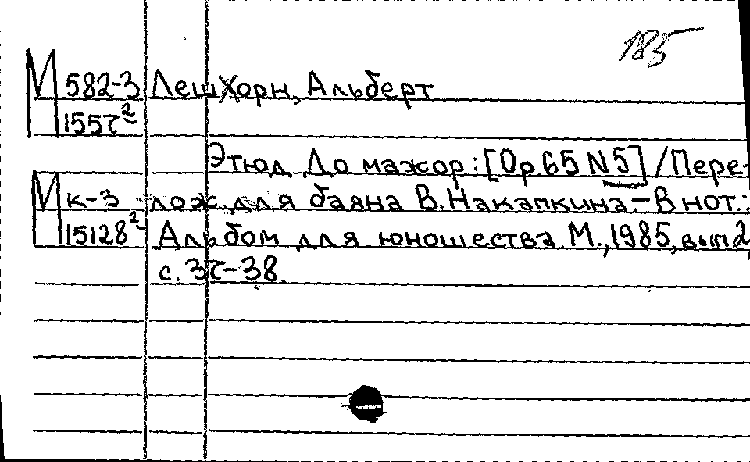 185
М 582-3 ЛешХорн, Альберт
1557²
Этюд До мажор: [Ор 65 N 5] / Пере-
М к-3 лож. для баяна В. Накапкина.– В нот.:
15128² Альбом для юношества. М., 1985, вып 2,
с. 37-38.